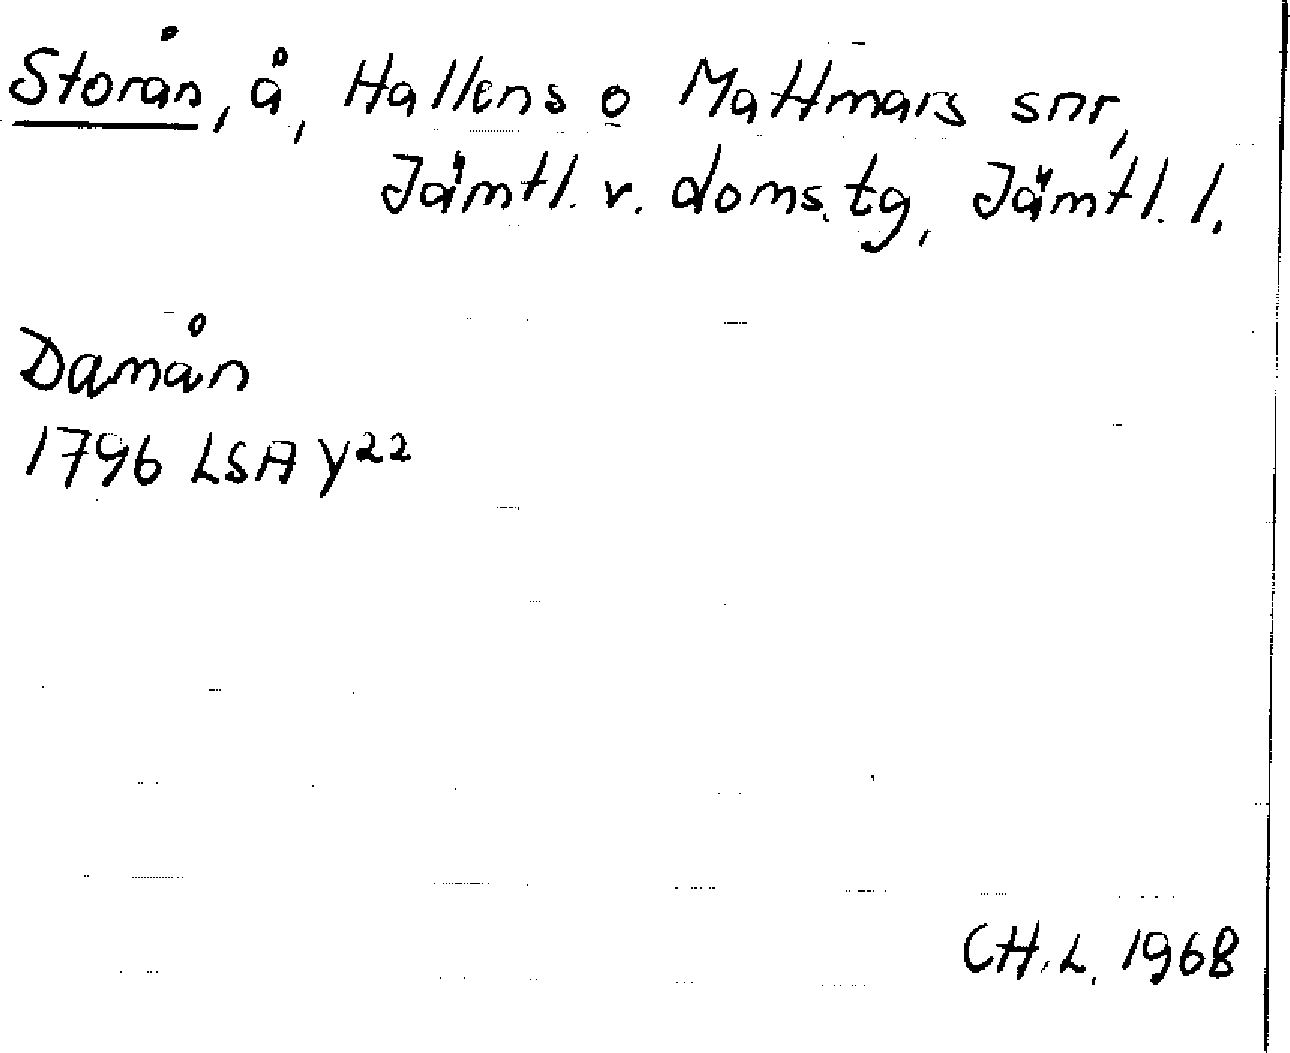 Storån, å, Hallens o Mattmars snr,
Jämtl. v. doms. tg, Jämtl. l.
Damån
1796 LSA Y22
CH. L. 1968